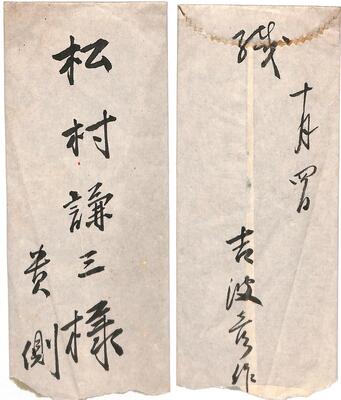 松村謙三様
貴側
緘
十月四日
吉波彦作